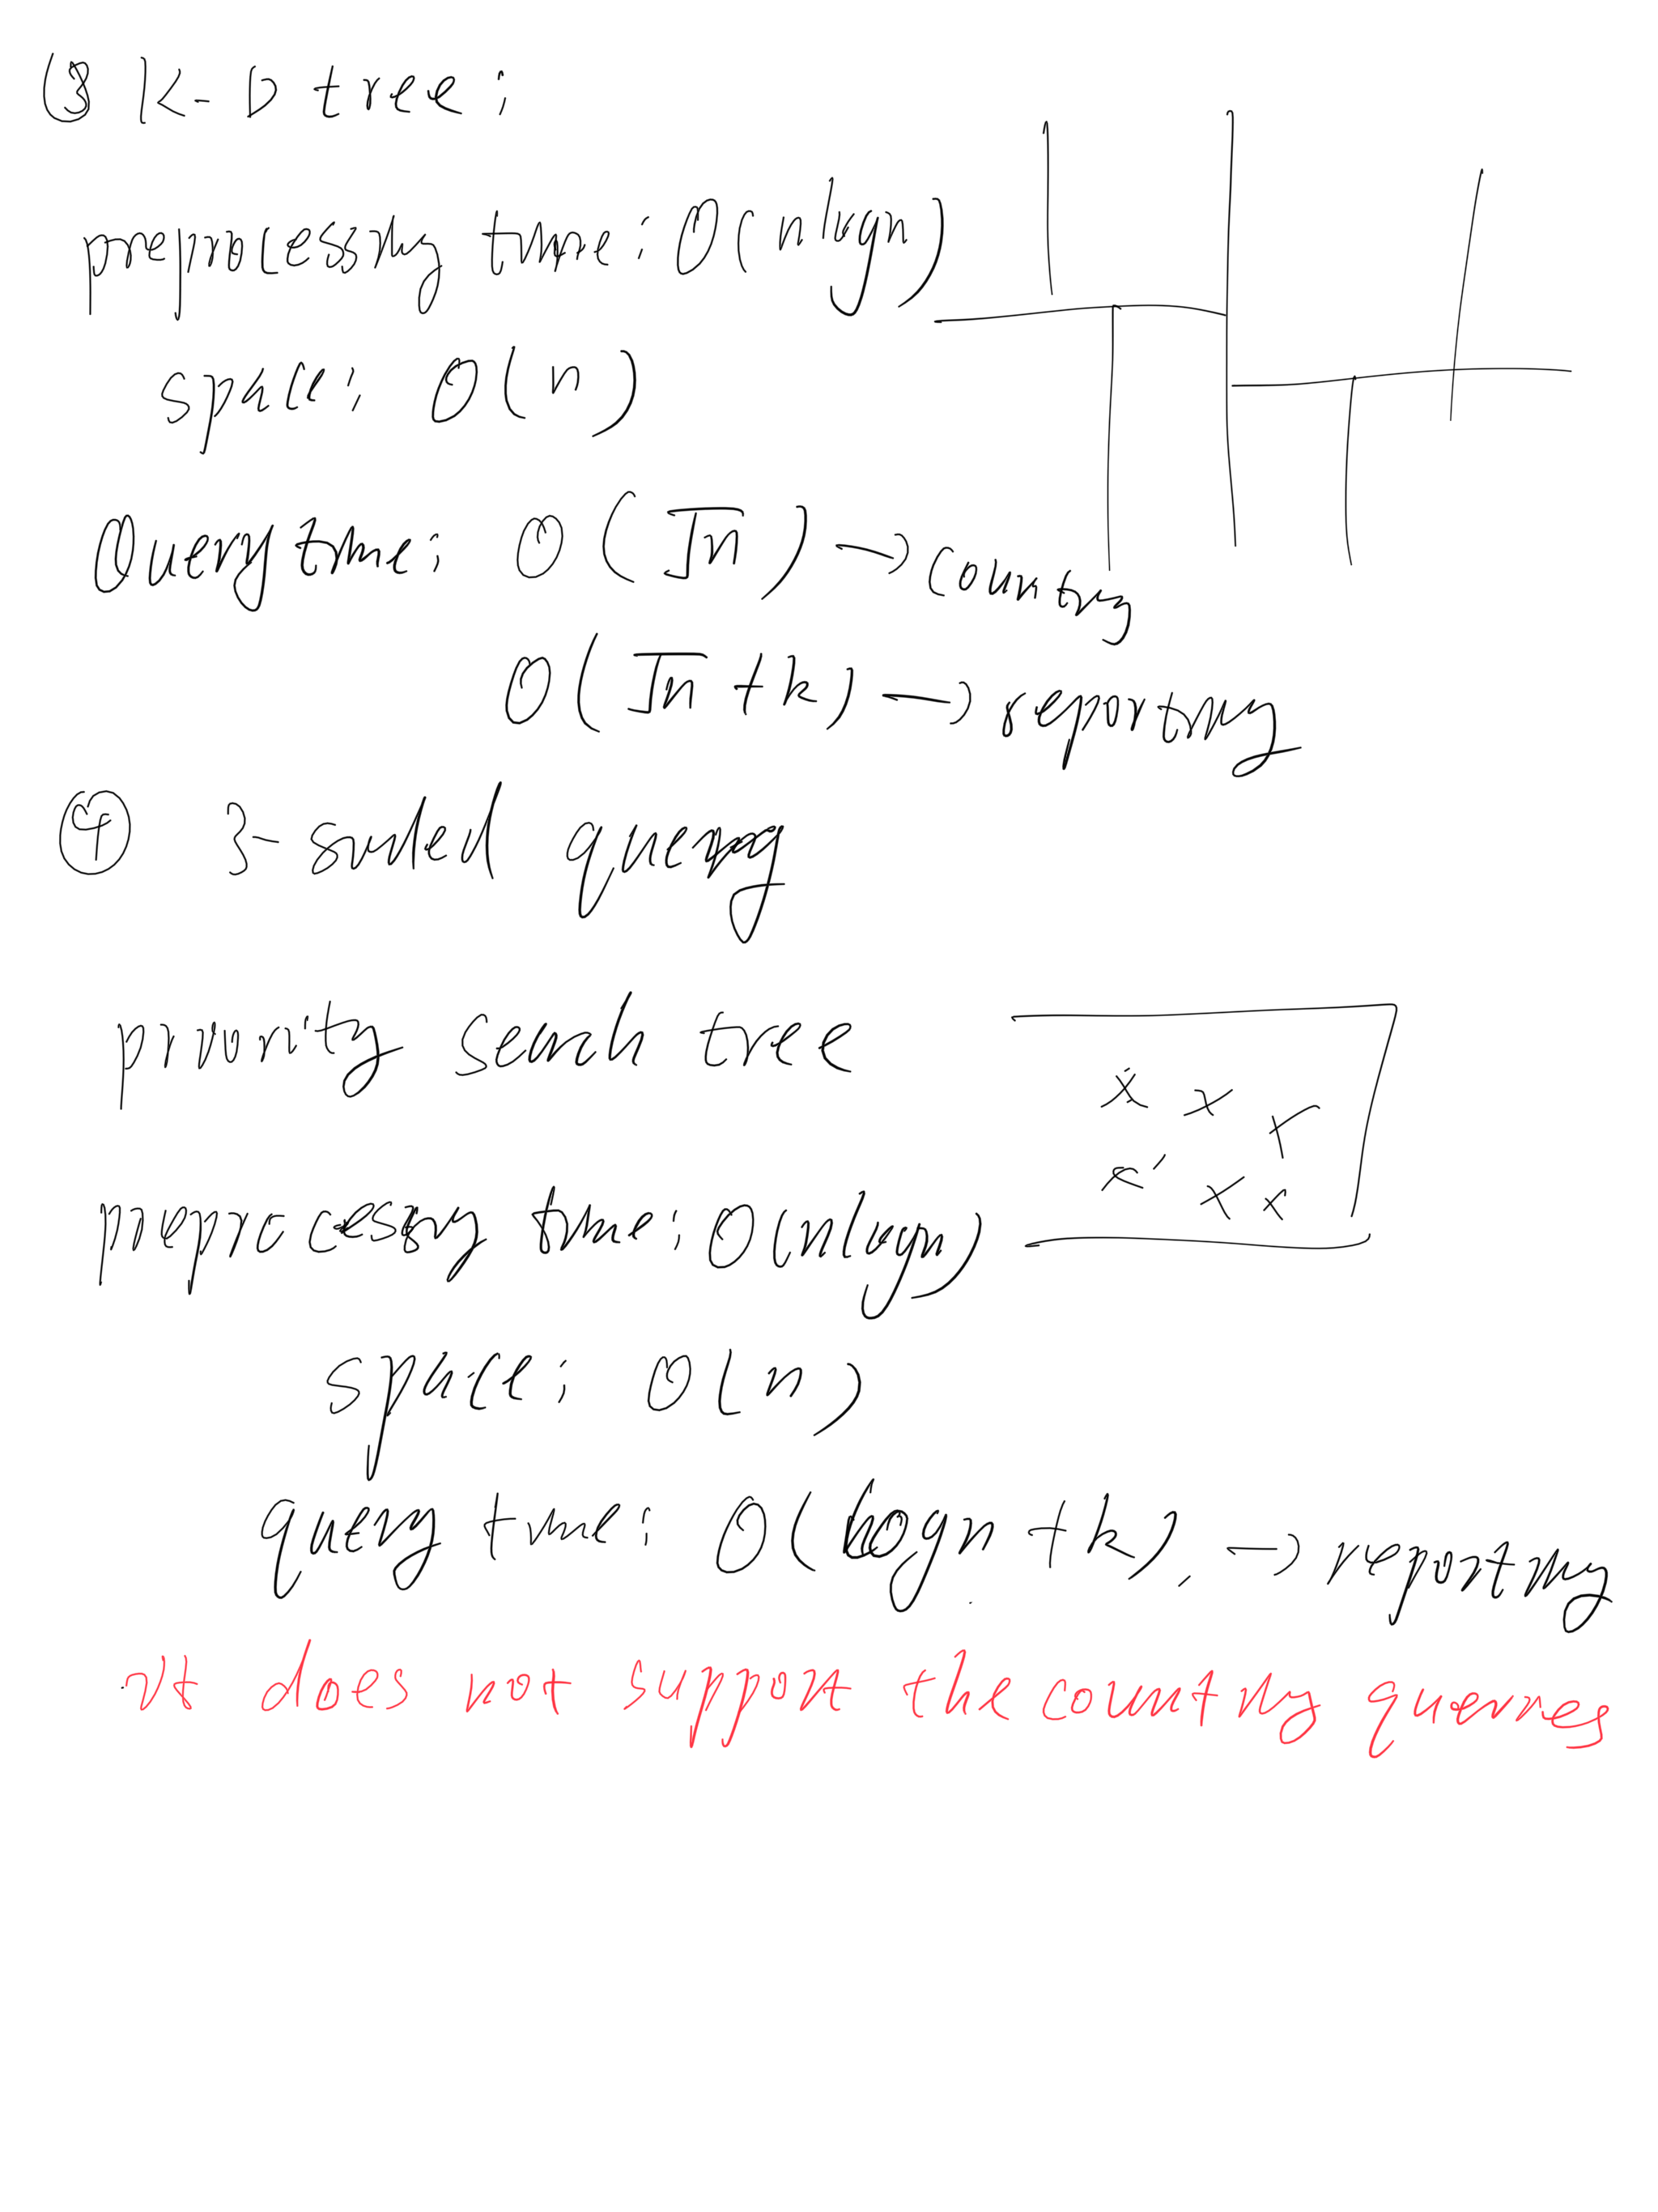 ③ K-D tree:
preprocessing time: O(nlgn)
space: O(n)
Query time: O(√n) → counting
O(√n + k) → reporting
④ 3-sided query
priority search tree
preprocessing time: O(nlogn)
space: O(n)
query time: O(logn + k). → reporting
It does not support the counting queries